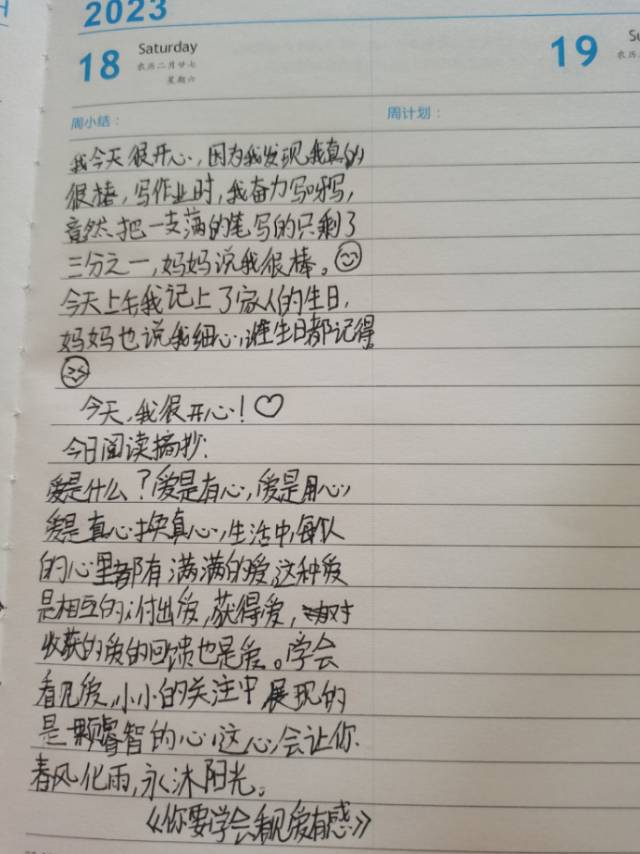 2023
18
Saturday
农历二月廿七
星期六
19
Su
农历
周小结：
周计划：
我今天很开心，因为我发现我真的
很棒，写作业时，我奋力写呀写，
竟然把一支满的笔写的只剩了
三分之一，妈妈说我很棒。
今天上午我记上了家人的生日，
妈妈也说我细心，谁生日都记得
今天，我很开心！♡
今日阅读摘抄：
爱是什么？爱是有心，爱是用心，
爱是真心换真心，生活中，每个人
的心里都有满满的爱，这种爱
是相互的，付出爱，获得爱，对
收获的爱的回馈也是爱。学会
看见爱，小小的关注中展现的
是一颗睿智的心，这心会让你
春风化雨，永沐阳光。
《你要学会看见爱有感》